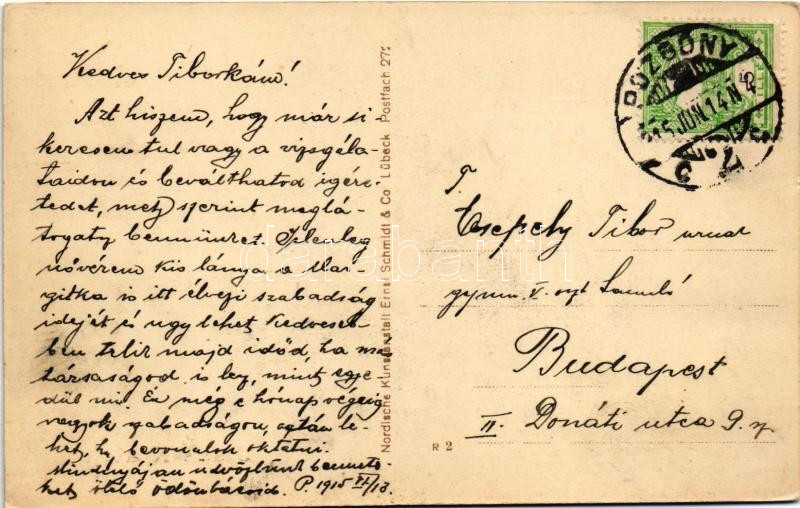 Kedves Tiborkám!
Azt hiszem, hogy már si-
keresen tul vagy a vizsgála-
taidon és beválthatod igére-
tedet, mely szerint meglá-
togatsz bennünket. Jelenleg
nővérem kis lánya a Mar-
gitka is itt élvezi szabadság
idejét és ugy lehet kedveseb-
ben telik majd időd, ha más
társaságod is lesz, mint egye-
dül mi. Én még e hónap végéig
vagyok szabadságon, aztán le-
het, hogy bevonulok oktatni.
Mindnyájan üdvözlünk bennete-
ket ölelő Ödönbácsid. P. 1915 VI/13.
Nordische Kunstanstalt Ernst Schmidt & Co Lübeck Postfach 27
R 2
POZSONY
915 JUN. 14 N
T.
Csepely Tibor urnak
gymn. V. oszt tanuló
Budapest
II. Donáti utca 9. sz
darabanth